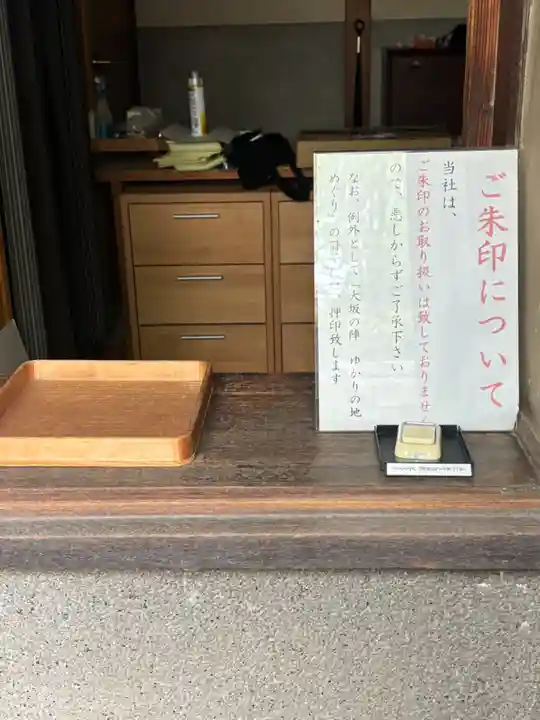 ご朱印について
当社は、
ご朱印のお取り扱いは致しておりません
ので、悪しからずご了承下さい
なお、例外として「大坂の陣 ゆかりの地
めぐり」の 押印致します